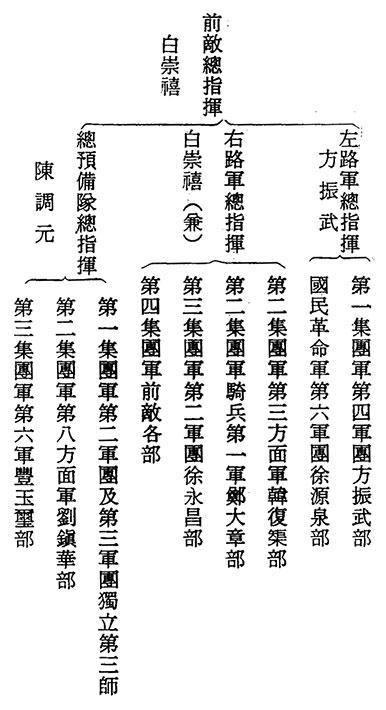 前敵總指揮
白崇禧
左路軍總指揮
方振武
第一集團軍第四軍團方振武部
國民革命軍第六軍團徐源泉部
右路軍總指揮
白崇禧（兼）
第二集團軍第三方面軍韓復榘部
第二集團軍騎兵第一軍鄭大章部
第三集團軍第二軍團徐永昌部
第四集團軍前敵各部
總預備隊總指揮
陳調元
第一集團軍第二軍團及第三軍團獨立第三師
第二集團軍第八方面軍劉鎭華部
第三集團軍第六軍豐玉璽部